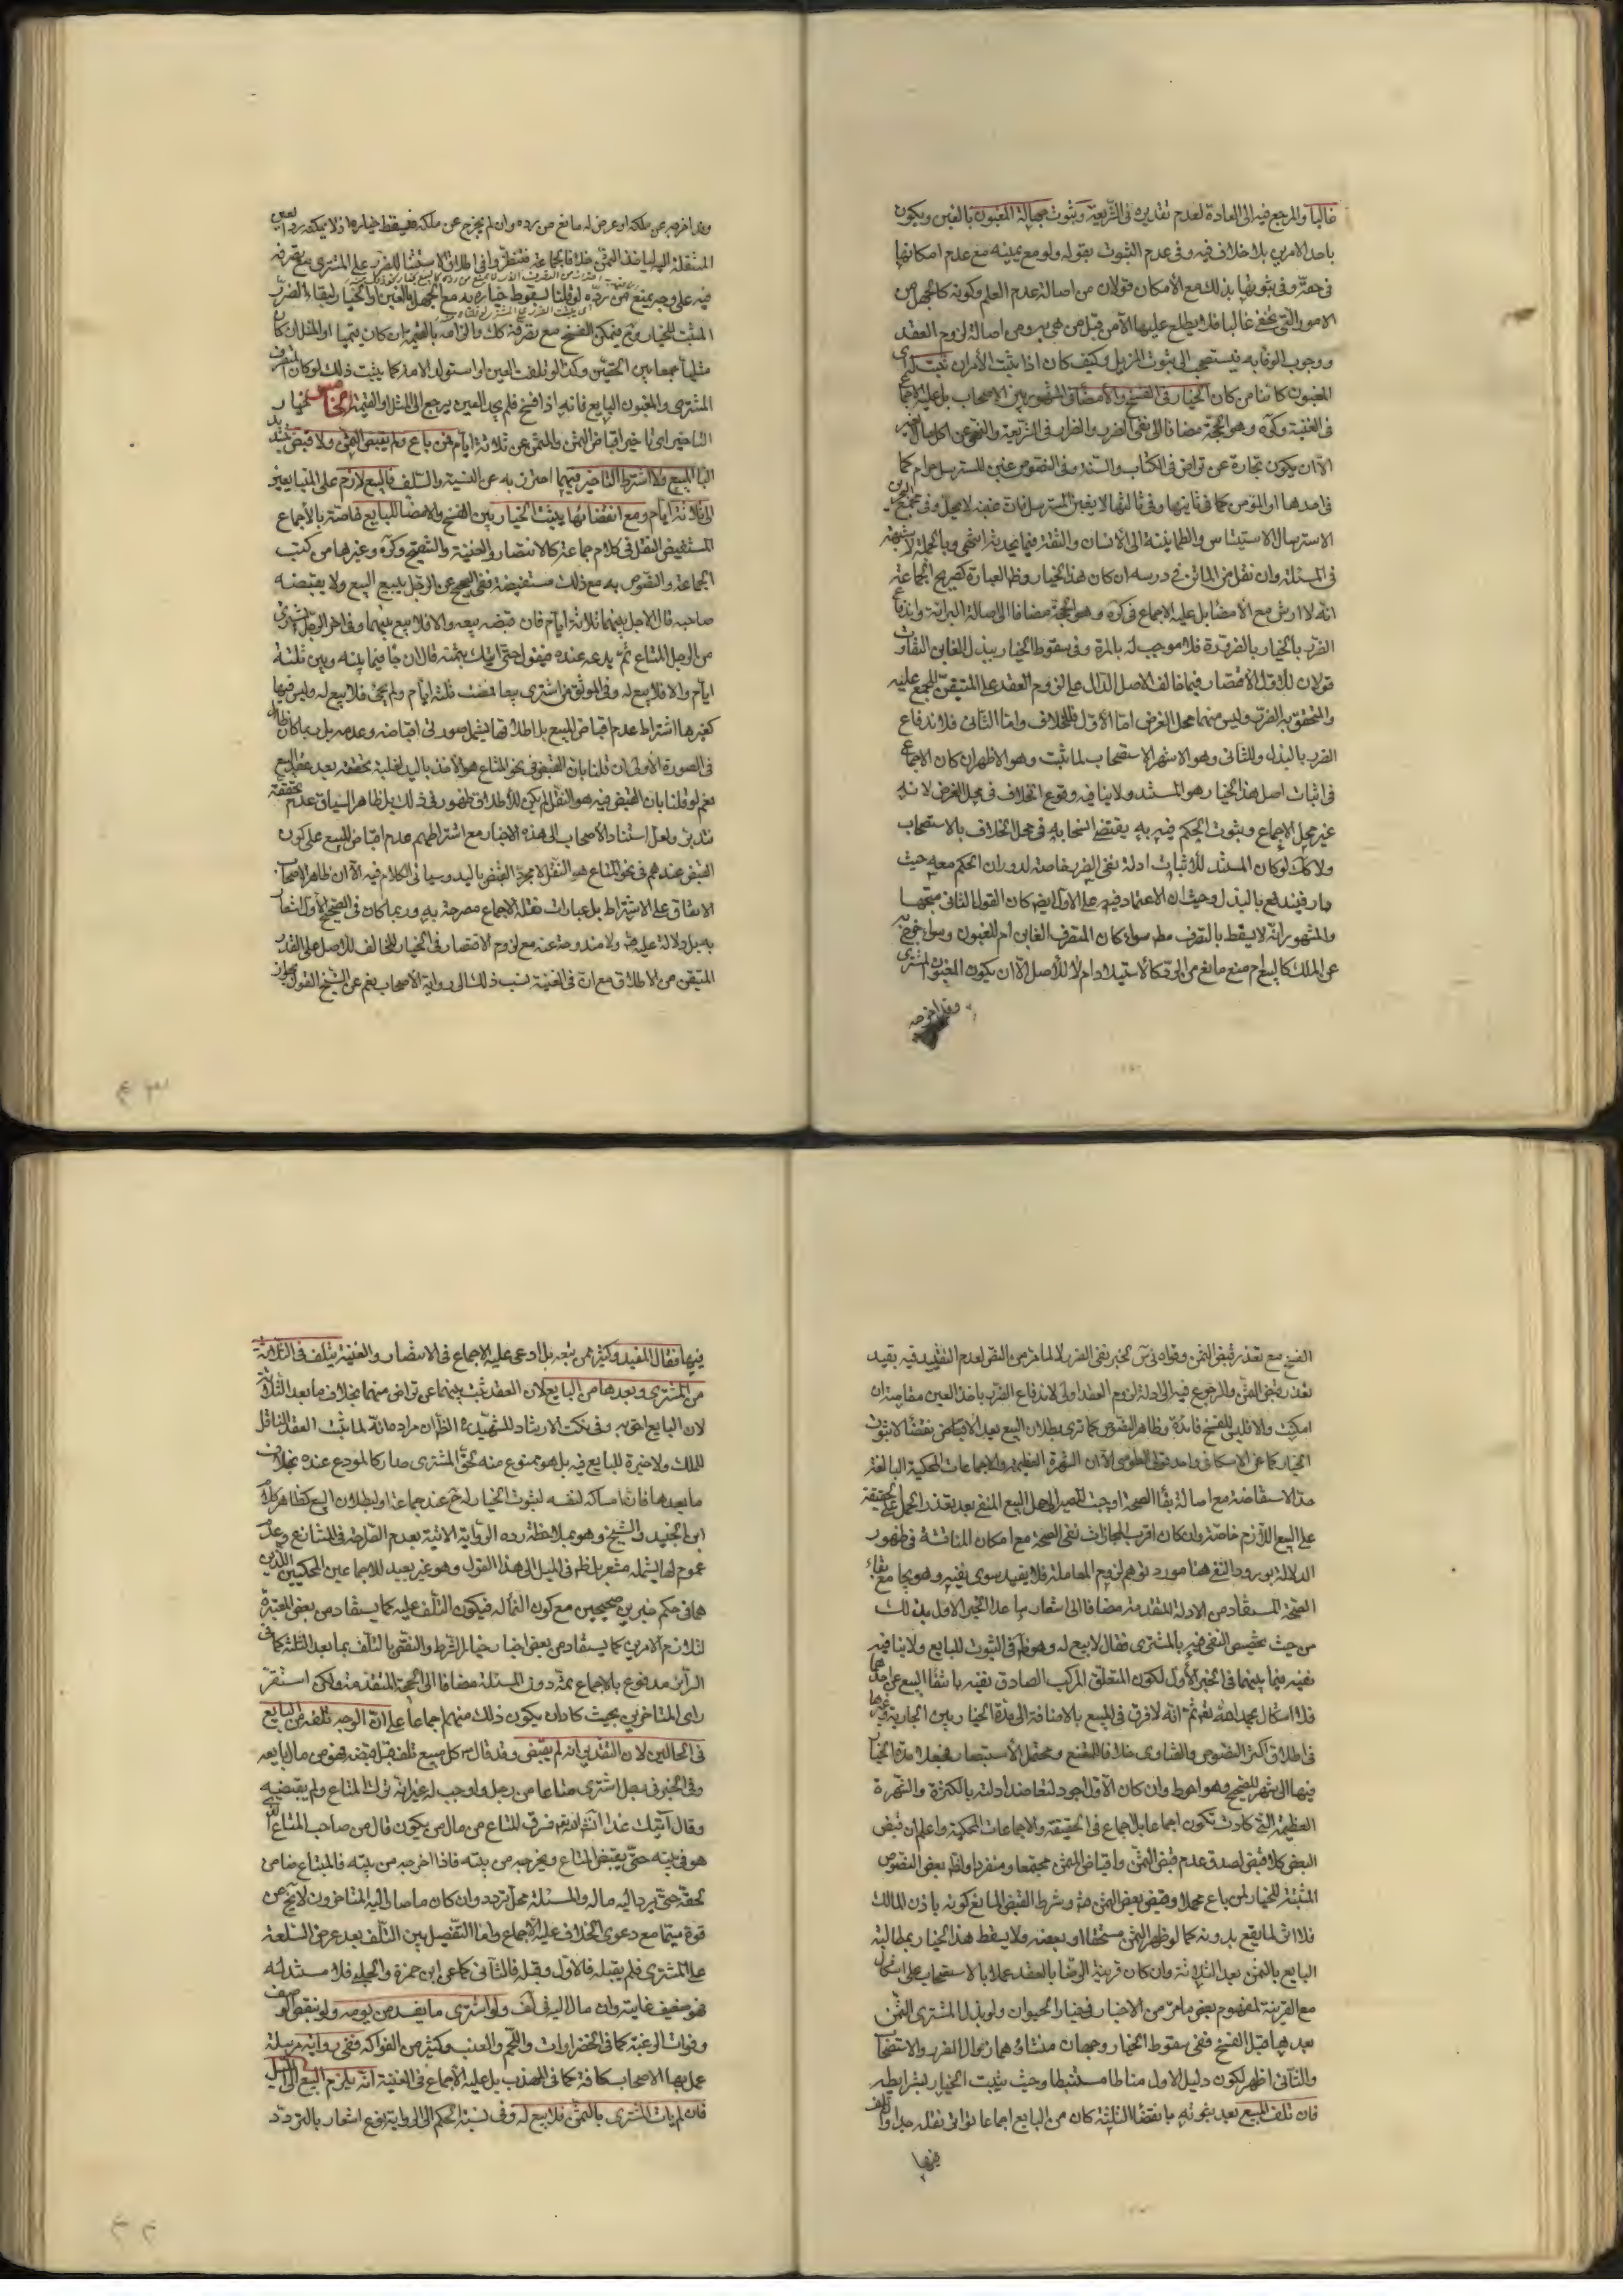 غالبا والمرجع فيه الى العادة لعدم تقديره فى الشريعة وثبوت جهالة المغبون بالغبن ويكون
باحد الامرين بلا خلاف فيه وفى عدم الثبوت بقوله ولو مع يمينه مع عدم امكانها
فى حقه وفى ثبوتها بذلك مع الامكان قولان من اصالة عدم العلم وكونه كالجهل من
الامور التى تخفى غالبا فلا يطلع عليها الا من قبل من هى به ومن اصالة لزوم العقد
ووجوب الوفاء به فيستصحب الى ثبوت المزيل وكيف كان اذا ثبت الامران ثبت له اى
المغبون كائنا من كان الخيار فى الفسخ والامضاء على المشهور بين الاصحاب بل عليه الاجماع
فى الغنية وكره وهو الحجة مضافا الى نفى الضرر والضرار فى الشريعة والنهى عن اكل مال الغير
الا ان يكون تجارة عن تراض فى الكتاب والسنة وفى النصوص غبن المسترسل حرام كما
فى احدها او المؤمن كما فى ثانيها وفى ثالثها لا يغبن المسترسل فان غبنه لا يحل وفى مجمع البحرين
الاسترسال الاستيناس والطمانينة الى الانسان والثقة فيما يحدثه انتهى وبالجملة لا شبهة
فى المسئلة وان نقل من الماتن فى درسه ان كان هذا الخيار وظ العبارة كصريح الجماعة
انه لا ارش مع الامضاء بل عليه الاجماع فى كره وهو الحجة مضافا الى اصالة البرائة واندفاع
الضرر بالخيار بالضرورة فلا موجب له بالمرة وفى سقوط الخيار ببذل الغابن التفاوت
قولان للاول الاقتصار فيما خالف الاصل الدال على لزوم العقد على المتيقن المجمع عليه
والمتحقق به الضرر وليس منهما محل الفرض اما الاول فللخلاف واما الثانى فلاندفاع
الضرر بالبذل وللثانى وهو الاشهر الاستصحاب لما ثبت وهو الاظهر ان كان الاجماع
فى اثبات اصل هذا الخيار هو المستند ولا ينافيه وقوع الخلاف فى محل الفرض لانه
غير محل الاجماع وثبوت الحكم فيه به يقتضى انسحابه فى محل الخلاف بالاستصحاب
ولا كك لو كان المستند للاثبات ادلة نفى الضرر خاصة لدوران الحكم معه حيث
دار فيندفع بالبذل وحيث ان الاعتماد فيه على الاول ايضا كان القول الثانى متجها
والمشهور انه لا يسقط بالتصرف مط سواء كان المتصرف الغابن ام المغبون وسواء خرج به
عن الملك كالبيع ام منع مانع من الرد كالاستيلاد ام لا للاصل الا ان يكون المغبون المشترى
وقد اخرجه
وقد اخرجه عن ملكه او عرض له مانع من رده وان لم يخرج عن ملكه فيسقط خياره اذ لا يمكنه رد العين
المنتقلة اليه لياخذ الثمن خلافا لجماعة فتنظروا فى اطلاق الاستثناء للضرر على المشترى مع تصرفه
فيه على وجه يمنع من رده لو قلنا بسقوط خياره به مع الجهل بالغبن او الخيار لبقاء الضرر
المثبت للخيار وح فيمكن الفسخ مع تصرفه كك والزامه بالقيمة ان كان قيميا او المثل ان كان
مثليا جمعا بين الحقين وكذا لو تلفت العين او استولد الامة كما يثبت ذلك لو كان المتصرف
المشترى والمغبون البايع فانه اذا فسخ فلم يجد العين يرجع الى المثل او القيمة الخامس خيار
التاخير اى تاخير اقباض الثمن والمثمن عن ثلاثة ايام فمن باع ولم يقبض الثمن ولا قبض
البايع المبيع ولا اشترط التاخير فيهما احترز به عن النسية والسلف فالبيع لازم على المتبايعين
الى ثلاثة ايام ومع انقضائها يثبت الخيار بين الفسخ والامضاء للبايع خاصة بالاجماع
المستفيض النقل فى كلام جماعة كالانتصار والغنية والتنقيح وكره وغيرها من كتب
الجماعة والنصوص به مع ذلك مستفيضة ففى الصحيح عن الرجل يبيع البيع ولا يقبضه
صاحبه قال الاجل بينهما ثلاثة ايام فان قبضه بيعه والا فلا بيع بينهما وفى اخر الرجل اشترى
من الرجل المتاع ثم يدعه عنده فيقول حتى اتيك بثمنه قال ان جاء فيما بينه وبين ثلثة
ايام والا فلا بيع له وفى الموثق من اشترى بيعا فمضت ثلثة ايام ولم يجئ فلا بيع له وليس فيها
كغيرها اشتراط عدم اقباض المبيع بل اطلاقها يشمل صورتى اقباضه وعدمه بل ربما كان ظاهرا
فى الصورة الاولى ان قلنا بان القبض فى نحو المتاع هو الاخذ باليد لغلبة تحققه بعد عقد البيع
نعم لو قلنا بان القبض فيه هو النقل لم يكن للاطلاق ظهور فى ذلك بل ظاهر السياق عدم تحققه
فتدبر ولعل استناد الاصحاب الى هذه الاخبار مع اشتراطهم عدم اقباض المبيع على كون
القبض عندهم فى نحو المتاع هو النقل لا مجرد القبض باليد وسياتى الكلام فيه الا ان ظاهر الاصحاب
الاتفاق على الاشتراط بل عبارات نقلة الاجماع مصرحة به وربما كان فى الصحيح الاول اشعار
به بل دلالة عليه ولا مندوحة عنه مع لزوم الاقتصار فى الخيار المخالف للاصل على القدر
المتيقن من الاطلاق مع ان فى الغنية نسب ذلك الى رواية الاصحاب نعم عن الشيخ القول بجواز
الفسخ مع تعذر قبض الثمن وقواه فى س لخبر نفى الضرر لا لما مر من النص لعدم التقييد فيه بقيد
تعذر قبض الثمن والرجوع فيه الى ادلة لزوم العقد اولى لاندفاع الضرر باخذ العين مقاصة ان
امكنت والا فليس للفسخ فائدة وظاهر النصوص كما ترى بطلان البيع بعد الانقضاء لا ثبوت
الخيار كما عن الاسكافى واحد قولى الطوسى الا ان الشهرة العظيمة والاجماعات المحكية البالغة
حد الاستفاضة مع اصالة بقاء الصحة اوجبت المصير الى حمل البيع المنفى بعد تعذر الحمل على حقيقة
على البيع اللازم خاصة وان كان اقرب المجازات نفى الصحة مع امكان المناقشة فى ظهور
الدلالة بورود النفى هنا مورد توهم لزوم المعاملة فلا يفيد سوى نفيه وهو يجامع بقاء
الصحة المستفاد من الادلة المتقدمة مضافا الى اشعار ما عدا الخبر الاول بذلك
من حيث تخصيص النفى فيه بالمشترى فقال لا بيع له وهو ظ فى الثبوت للبايع ولا ينافيه
نفيه فيما بينهما فى الخبر الاول لكون المتعلق المركب الصادق نفيه بانتفاء البيع عن احدهما
فلا اشكال بحمد الله تعالى ثم انه لا فرق فى المبيع بالاضافة الى مدة الخيار بين الجارية وغيرها
فى اطلاق اكثر النصوص والفتاوى خلافا للمقنع ومحتمل الاستبصار فجعلا مدة الخيار
فيها الى شهر للصحيح وهو احوط وان كان الاول اجود لتعاضد ادلته بالكثرة والشهرة
العظيمة التى كادت تكون اجماعا بل اجماع فى الحقيقة والاجماعات المحكية واعلم ان قبض
البعض كلا قبض لصدق عدم قبض الثمن واقباض المثمن مجتمعا ومنفردا ولظ بعض النصوص
المثبتة للخيار لمن باع محملا وقبض بعض الثمن منه وشرط القبض المانع كونه باذن المالك
فلا اثر لما يقع بدونه كما لو ظهر الثمن مستحقا او بعضه ولا يسقط هذا الخيار بمطالبة
البايع بالثمن بعد الثلاثة وان كان قرينة الرضا بالعقد عملا بالاستصحاب على اشكال
مع القرينة لمفهوم بعض ما مر من الاخبار فى خيار الحيوان ولو بذل المشترى الثمن
بعدها قبل الفسخ ففى سقوط الخيار وجهان منشاؤهما زوال الضرر والاستصحاب
والثانى اظهر لكون دليل الاول مناطا مستنبطا وحيث يثبت الخيار بشرايطه
فان تلف المبيع بعد ثبوته بانقضاء الثلثة كان من البايع اجماعا تواتر نقله جدا ولو تلف
فيها
فيها فقال المفيد وكثير ممن تبعه بل ادعى عليه الاجماع فى الانتصار والغنية يتلف فى الثلاثة
من المشترى وبعدها من البايع لان العقد ثبت بينهما عن تراض منهما بخلاف ما بعد الثلاثة
لان البايع احق به وفى نكت الارشاد للشهيد ره الظ ان مراده انه لما ثبت العقد الناقل
للملك ولا خيرة للبايع فيه بل هو ممنوع منه لحق المشترى صار كالمودع عنده بخلاف
ما بعدها فان امساكه لنفسه لثبوت الخيار له ح عند جماعة او لبطلان البيع كظاهر كلام
ابن الجنيد والشيخ وهو بملاحظة رده الرواية الاتية بعدم الصراحة فى المتنازع وعدم
عموم لها يشمله مشعر بل ظ فى الميل الى هذا القول وهو غير بعيد للاجماعين المحكيين الذين
هما فى حكم خبرين صحيحين مع كون النماء له فيكون التلف عليه كما يستفاد من بعض المعتبرة
لتلازم الامرين كما يستفاد من بعض اخبار خيار الشرط والنقض بالتلف بما بعد الثلثة كما فى
الرائر مدفوع بالاجماع ثمة دون المسئلة مضافا الى الحجة المتقدمة ولكن استقر
راى المتاخرين بحيث كاد ان يكون ذلك منهم اجماعا على ان الوجه تلفه من البايع
فى الحالين لان التقدير انه لم يقبض وقد قال ص كل مبيع تلف قبل قبضه فهو من مال بايعه
وفى الخبر فى رجل اشترى متاعا من رجل واوجب له غير انه ترك المتاع ولم يقبضه
وقال آتيك غدا انشاء الله فسرق المتاع من مال من يكون قال من صاحب المتاع الذى
هو فى بيته حتى يقبض المتاع ويخرجه من بيته فاذا اخرجه من بيته فالمبتاع ضامن
لحقه حتى يرد اليه ماله والمسئلة محل تردد وان كان ما صار اليه المتاخرون لا يخ من
قوة سيما مع دعوى الخلاف عليه الاجماع واما التفصيل بين التلف بعد عرض السلعة
على المشترى فلم يقبله فالاول وقبله فالثانى كما عن ابن حمزة والحلبى فلا مستند له
فهو ضعيف غايته وان مال اليه فى لف ولو اشترى ما يفسد من يومه ولو بنقص الوصف
وفوات الرغبة كما فى الخضراوات واللحم والعنب وكثير من الفواكه ففى رواية مرسلة
عمل بها الاصحاب كافة كما فى المهذب بل عليه الاجماع فى الغنية انه يلزم البيع الى الليل
فان لم يات المشترى بالثمن فلا بيع له وفى نسبة الحكم الى الرواية نوع اشعار بالتردد